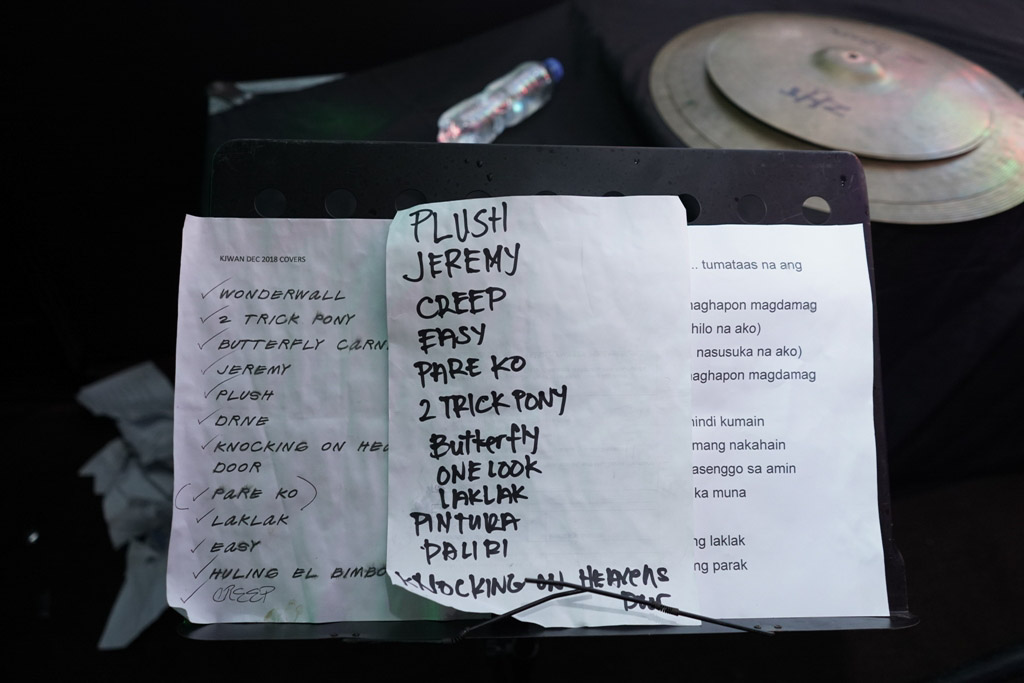 KJWAN DEC 2018 COVERS
WONDERWALL
2 TRICK PONY
BUTTERFLY CARN
JEREMY
PLUSH
DRNE
KNOCKING ON HEA
DOOR
(PARE KO)
LAKLAK
EASY
HULING EL BIMBO
CREEP
PLUSH
JEREMY
CREEP
EASY
PARE KO
2 TRICK PONY
Butterfly
ONE LOOK
LAKLAK
PINTURA
DALIRI
KNOCKING ON HEAVENS
DOOR
.. tumataas na ang
aghapon magdamag
hilo na ako)
nasusuka na ako)
aghapon magdamag
indi kumain
mang nakahain
asenggo sa amin
ka muna
ng laklak
ng parak